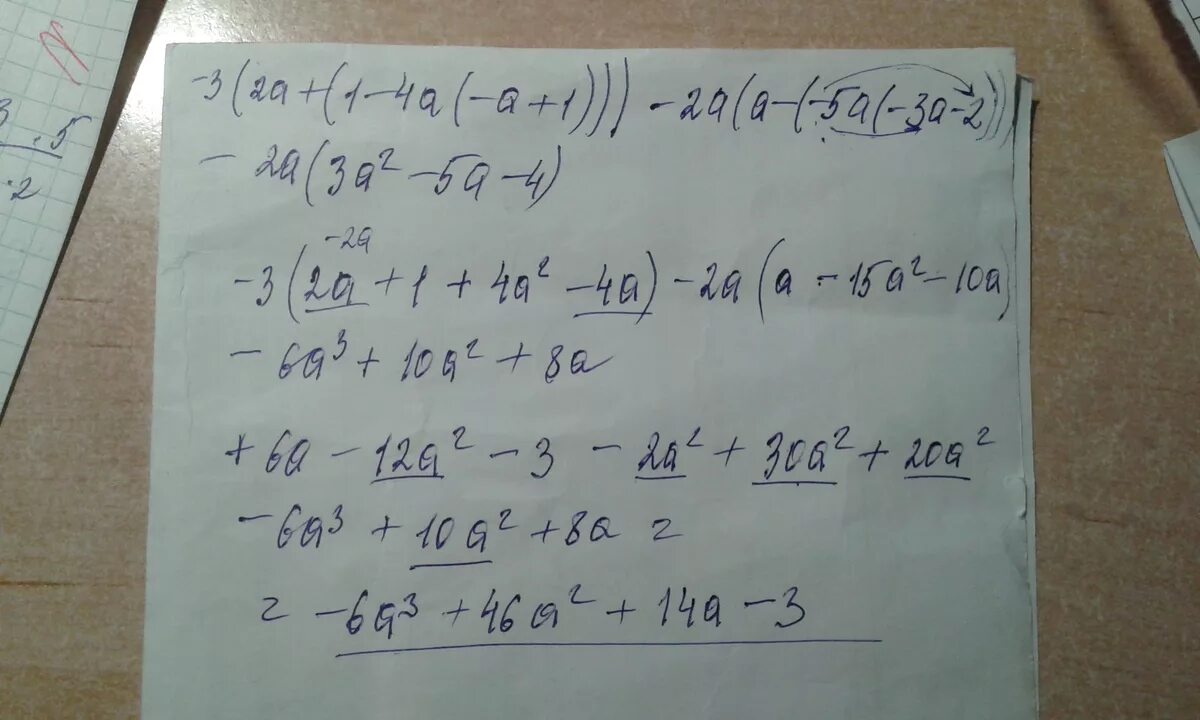 -3(2a+(1-4a(-a+1)))-2a(a-(-5a(-3a-2)))
- 2a(3a²-5a-4)
-2a
-3(2a+1+4a²-4a)-2a(a-15a²-10a)
-6a³+10a²+8a
+6a-12a²-3-2a²+30a²+20a²
-6a³+10a²+8a=
= -6a³+46a²+14a-3
3
·5
·2